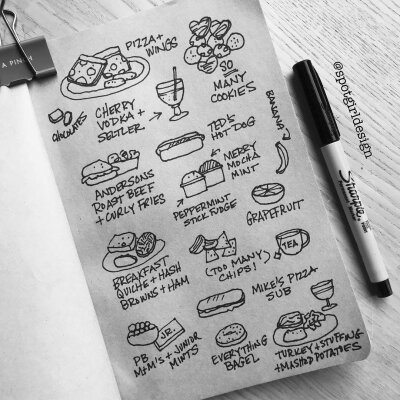 A PINCH
PIZZA +
WINGS
SO
MANY
COOKIES
CHOCOLATES
CHERRY
VODKA +
SELTZER
BANANA
TED'S
HOT DOG
ANDERSONS
ROAST BEEF
+ CURLY FRIES
MERRY
MOCHA
MINT
PEPPERMINT
STICK FUDGE
GRAPEFRUIT
BREAKFAST
QUICHE + HASH
BROWNS + HAM
(TOO MANY)
CHIPS!
TEA
MIKE'S PIZZA
SUB
JR.
PB
M+M'S + JUNIOR
MINTS
EVERYTHING
BAGEL
TURKEY + STUFFING
+ MASHED POTATOES
@spotgirldesign
Sharpie